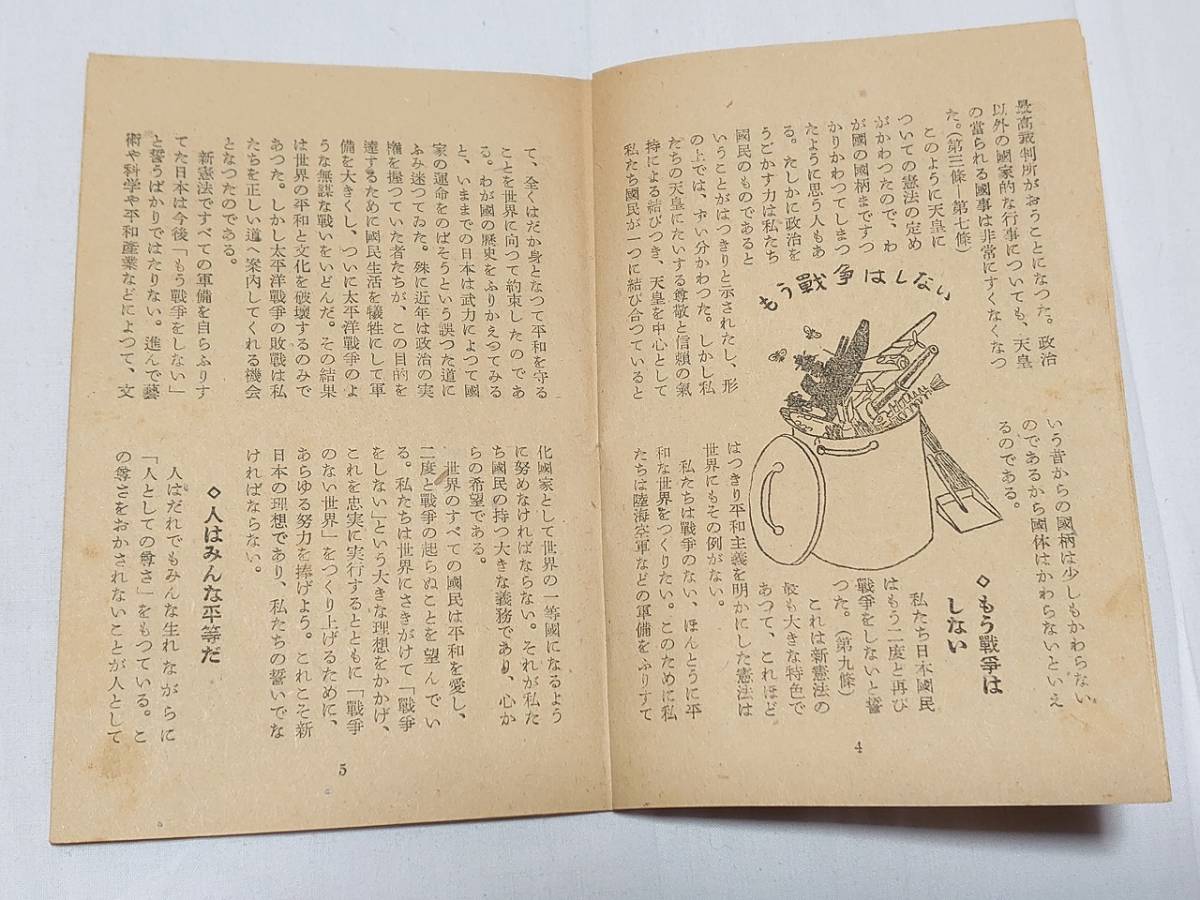 最高裁判所がおうことになつた。政治
以外の國家的な行事についても、天皇
の當られる國事は非常にすくなくなつ
た。(第三條―第七條)
このように天皇に
ついての憲法の定め
がかわつたので、わ
が國の國柄まですつ
かりかわつてしまつ
たように思う人もあ
る。たしかに政治を
うごかす力は私たち
國民のものであると
いうことがはつきりと示されたし、形
の上では、ずい分かわつた。しかし私
たちの天皇にたいする尊敬と信頼の氣
持による結びつき、天皇を中心として
私たち國民が一つに結び合つていると
もう戰爭はしない
いう昔からの國柄は少しもかわらない
のであるから國体はかわらないといえ
るのである。
◇もう戰爭は
しない
私たち日本國民
はもう二度と再び
戰爭をしないと誓
つた。(第九條)
これは新憲法の
最も大きな特色で
あつて、これほど
はつきり平和主義を明かにした憲法は
世界にもその例がない。
私たちは戰爭のない、ほんとうに平
和な世界をつくりたい。このために私
たちは陸海空軍などの軍備をふりすて
4
て、全くはだか身となつて平和を守る
ことを世界に向つて約束したのであ
る。わが國の歴史をふりかえつてみる
と、いままでの日本は武力によつて國
家の運命をのばそうという誤つた道に
ふみ迷つてゐた。殊に近年は政治の実
権を握つていた者たちが、この目的を
達するために國民生活を犠牲にして軍
備を大きくし、ついに太平洋戰爭のよ
うな無謀な戰いをいどんだ。その結果
は世界の平和と文化を破壊するのみで
あつた。しかし太平洋戰爭の敗戰は私
たちを正しい道へ案内してくれる機会
となつたのである。
新憲法ですべての軍備を自らふりす
てた日本は今後「もう戰爭をしない」
と誓うばかりではたりない。進んで藝
術や科学や平和産業などによつて、文
化國家として世界の一等國になるよう
に努めなければならない。それが私た
ち國民の持つ大きな義務であり、心か
らの希望である。
世界のすべての國民は平和を愛し、
二度と戰爭の起らぬことを望んでい
る。私たちは世界にさきがけて「戰爭
をしない」という大きな理想をかかげ、
これを忠実に実行するとともに「戰爭
のない世界」をつくり上げるために、
あらゆる努力を捧げよう。これこそ新
日本の理想であり、私たちの誓いでな
ければならない。
◇人はみんな平等だ
人はだれでもみんな生れながらに
「人としての尊さ」をもつている。こ
の尊さをおかされないことが人として
5